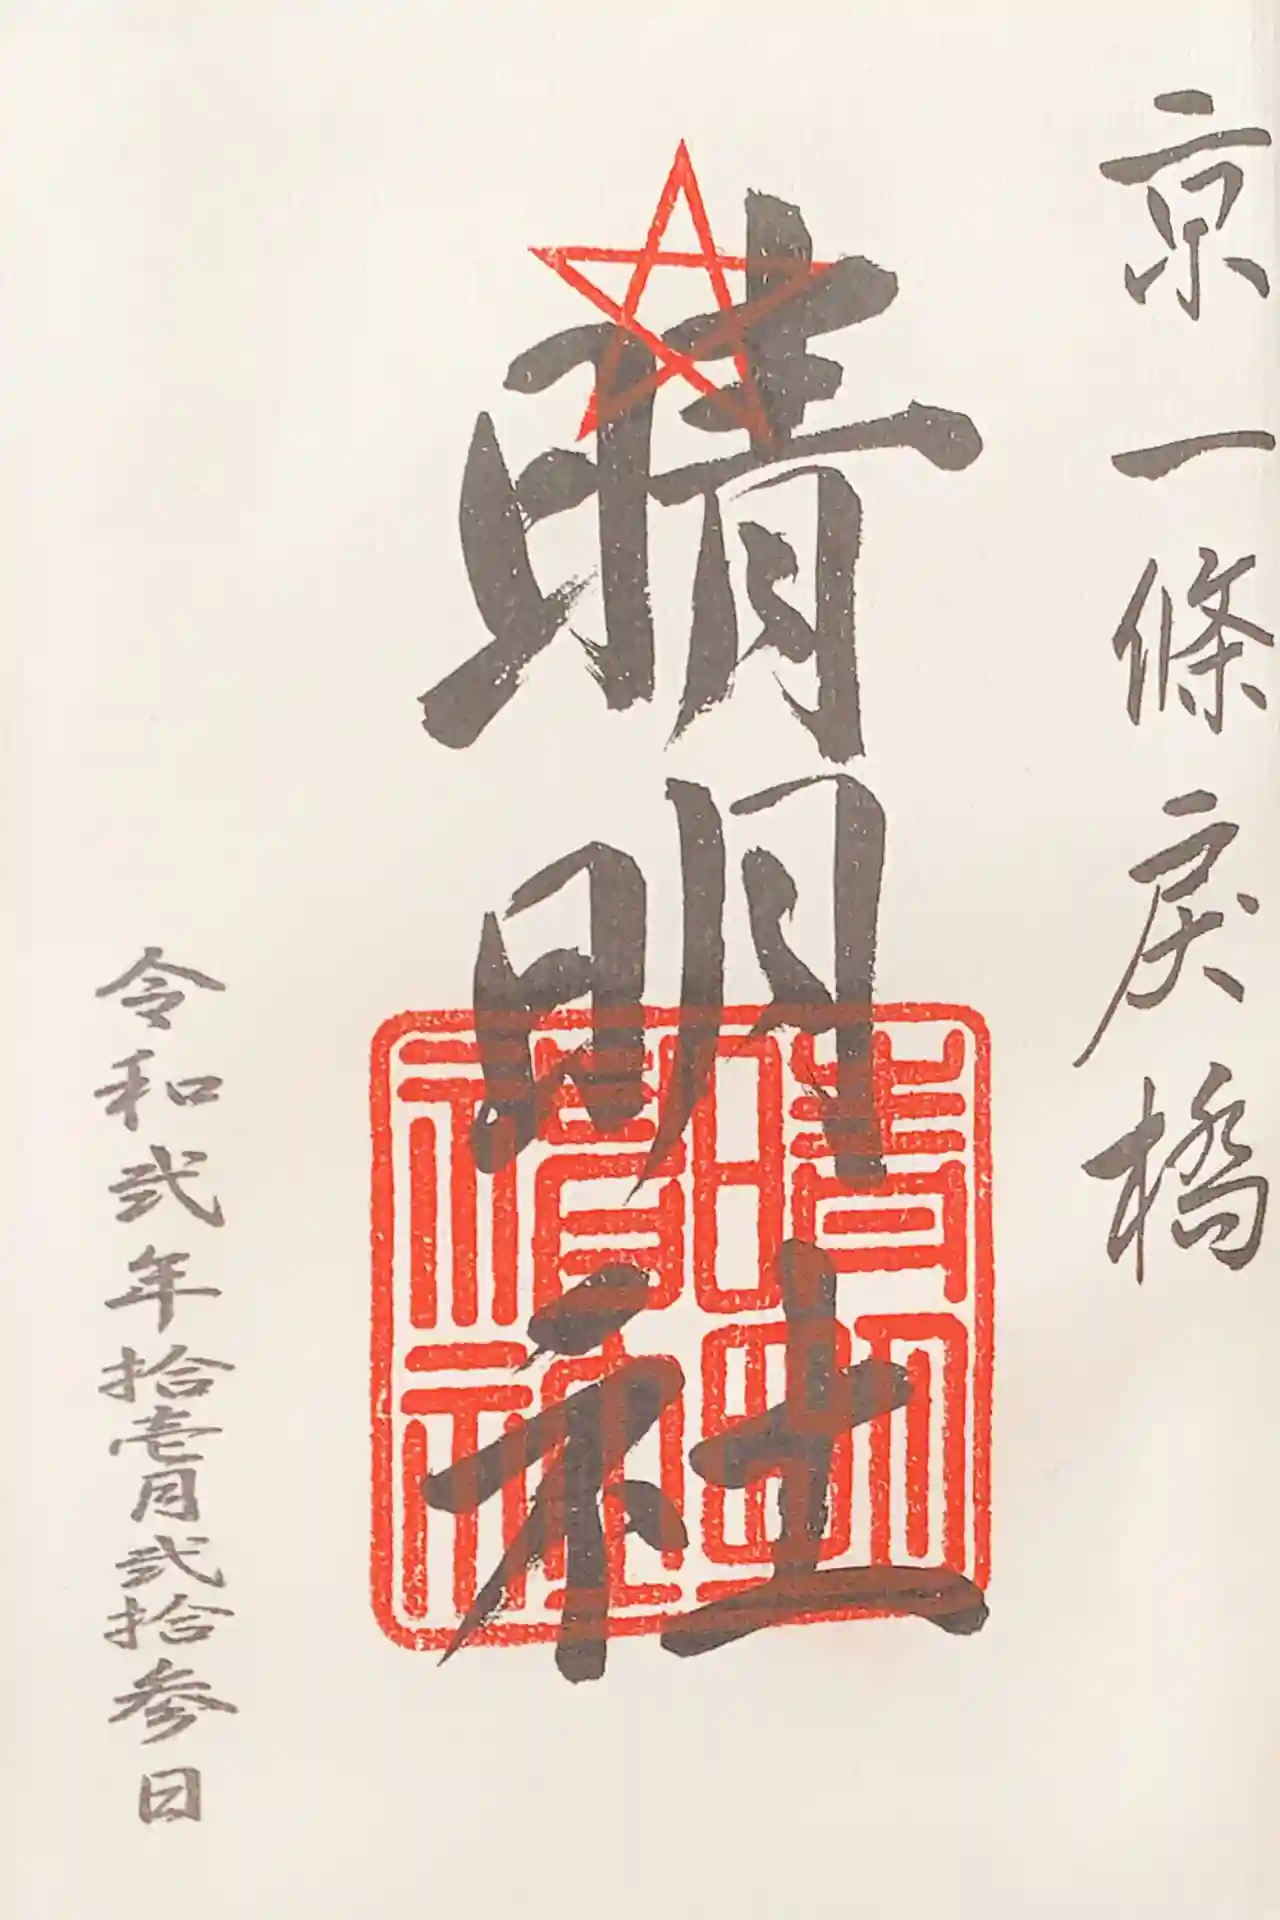 京一條戻橋
晴明社
晴明
神社
令和弐年拾壱月弐拾参日